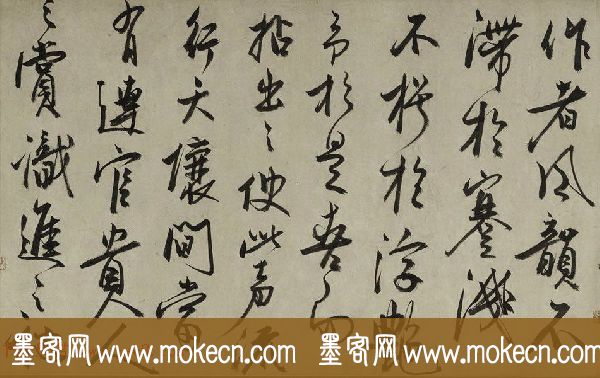 作者風韻不
滯於蹇
不於浮艷
予於是喜而
拈出之使此流
行天壤間當
有達官貴人
之賞識進之
墨客网 www.mokecn.com 墨客网 www.mokecn.com